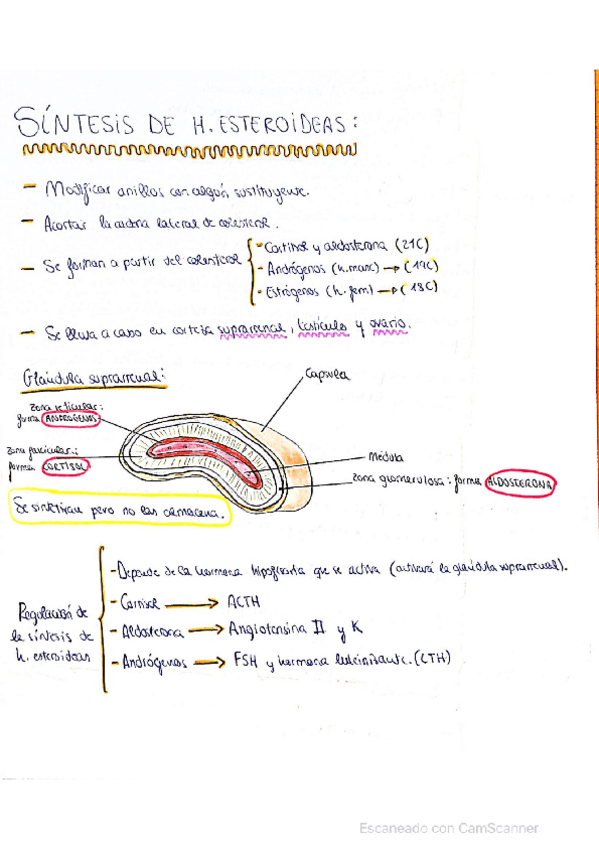 SÍNTESIS DE H. ESTEROIDEAS:
- Modificar anillos con algún sustituyente.
- Acortar la cadena lateral de colesterol.
- Se forman a partir del colesterol
- Cortisol y aldosterona (21C)
- Andrógenos (h. masc) → (19C)
- Estrógenos (h. fem) → (18C)
- Se lleva a cabo en corteza suprarrenal, testículo y ovario.
Glándula suprarrenal:
Capsula
Zona reticular:
forma ANDRÓGENOS
Zona fascicular:
forma CORTISOL
Médula
Zona glomerulosa: forma ALDOSTERONA
Se sintetizan pero no las almacena.
Regulación de
la síntesis de
h. esteroideas
- Depende de la hormona hipofisaria que se activa (activará la glándula suprarrenal).
- Cortisol → ACTH
- Aldosterona → Angiotensina II y K
- Andrógenos → FSH y hormona luteinizante. (LTH)
Escaneado con CamScanner